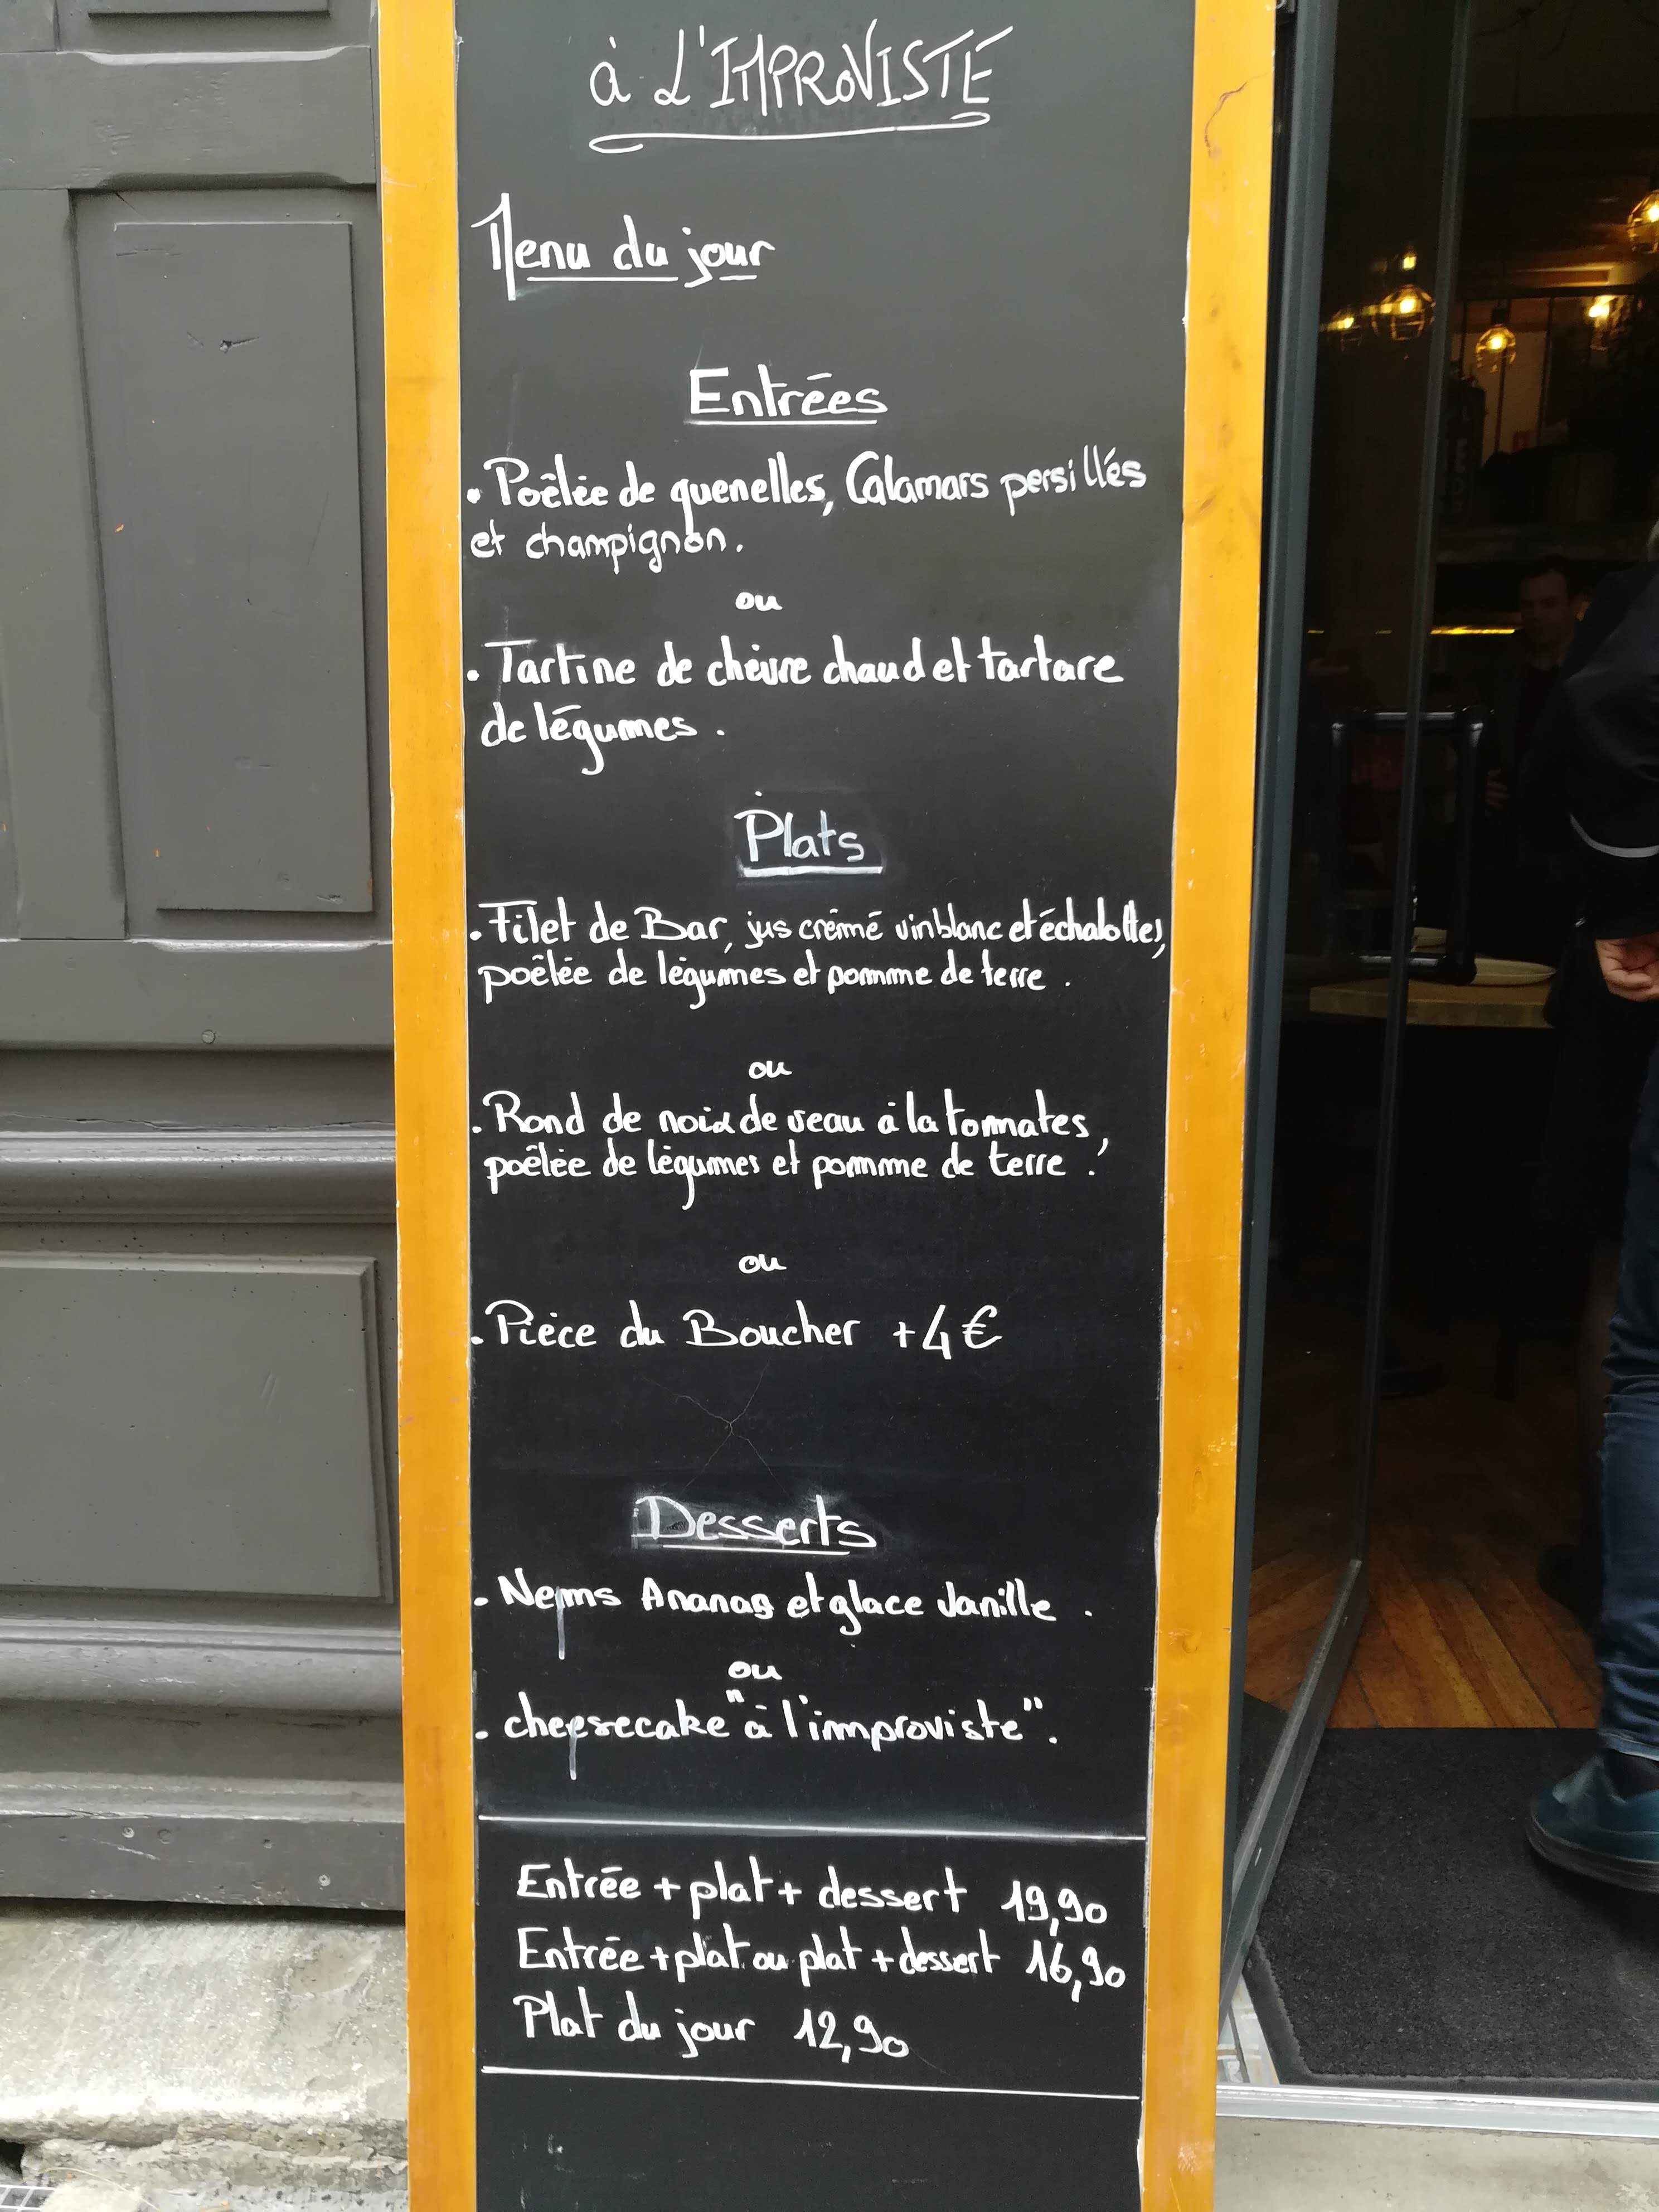 à L'IMPROVISTE
Menu du jour
Entrées
. Poêlée de quenelles, Calamars persillés
et champignon.
ou
. Tartine de chèvre chaud et tartare
de légumes.
Plats
. Filet de Bar, jus crémé vin blanc et échalottes,
poêlée de légumes et pomme de terre.
ou
. Rond de noix de veau à la tommates,
poêlée de légumes et pomme de terre.
ou
. Pièce du Boucher +4€
Desserts
. Nems Ananas et glace Vanille.
ou
. cheesecake "à l'improviste".
Entrée + plat + dessert 19,90
Entrée + plat ou plat + dessert 16,90
Plat du jour 12,90